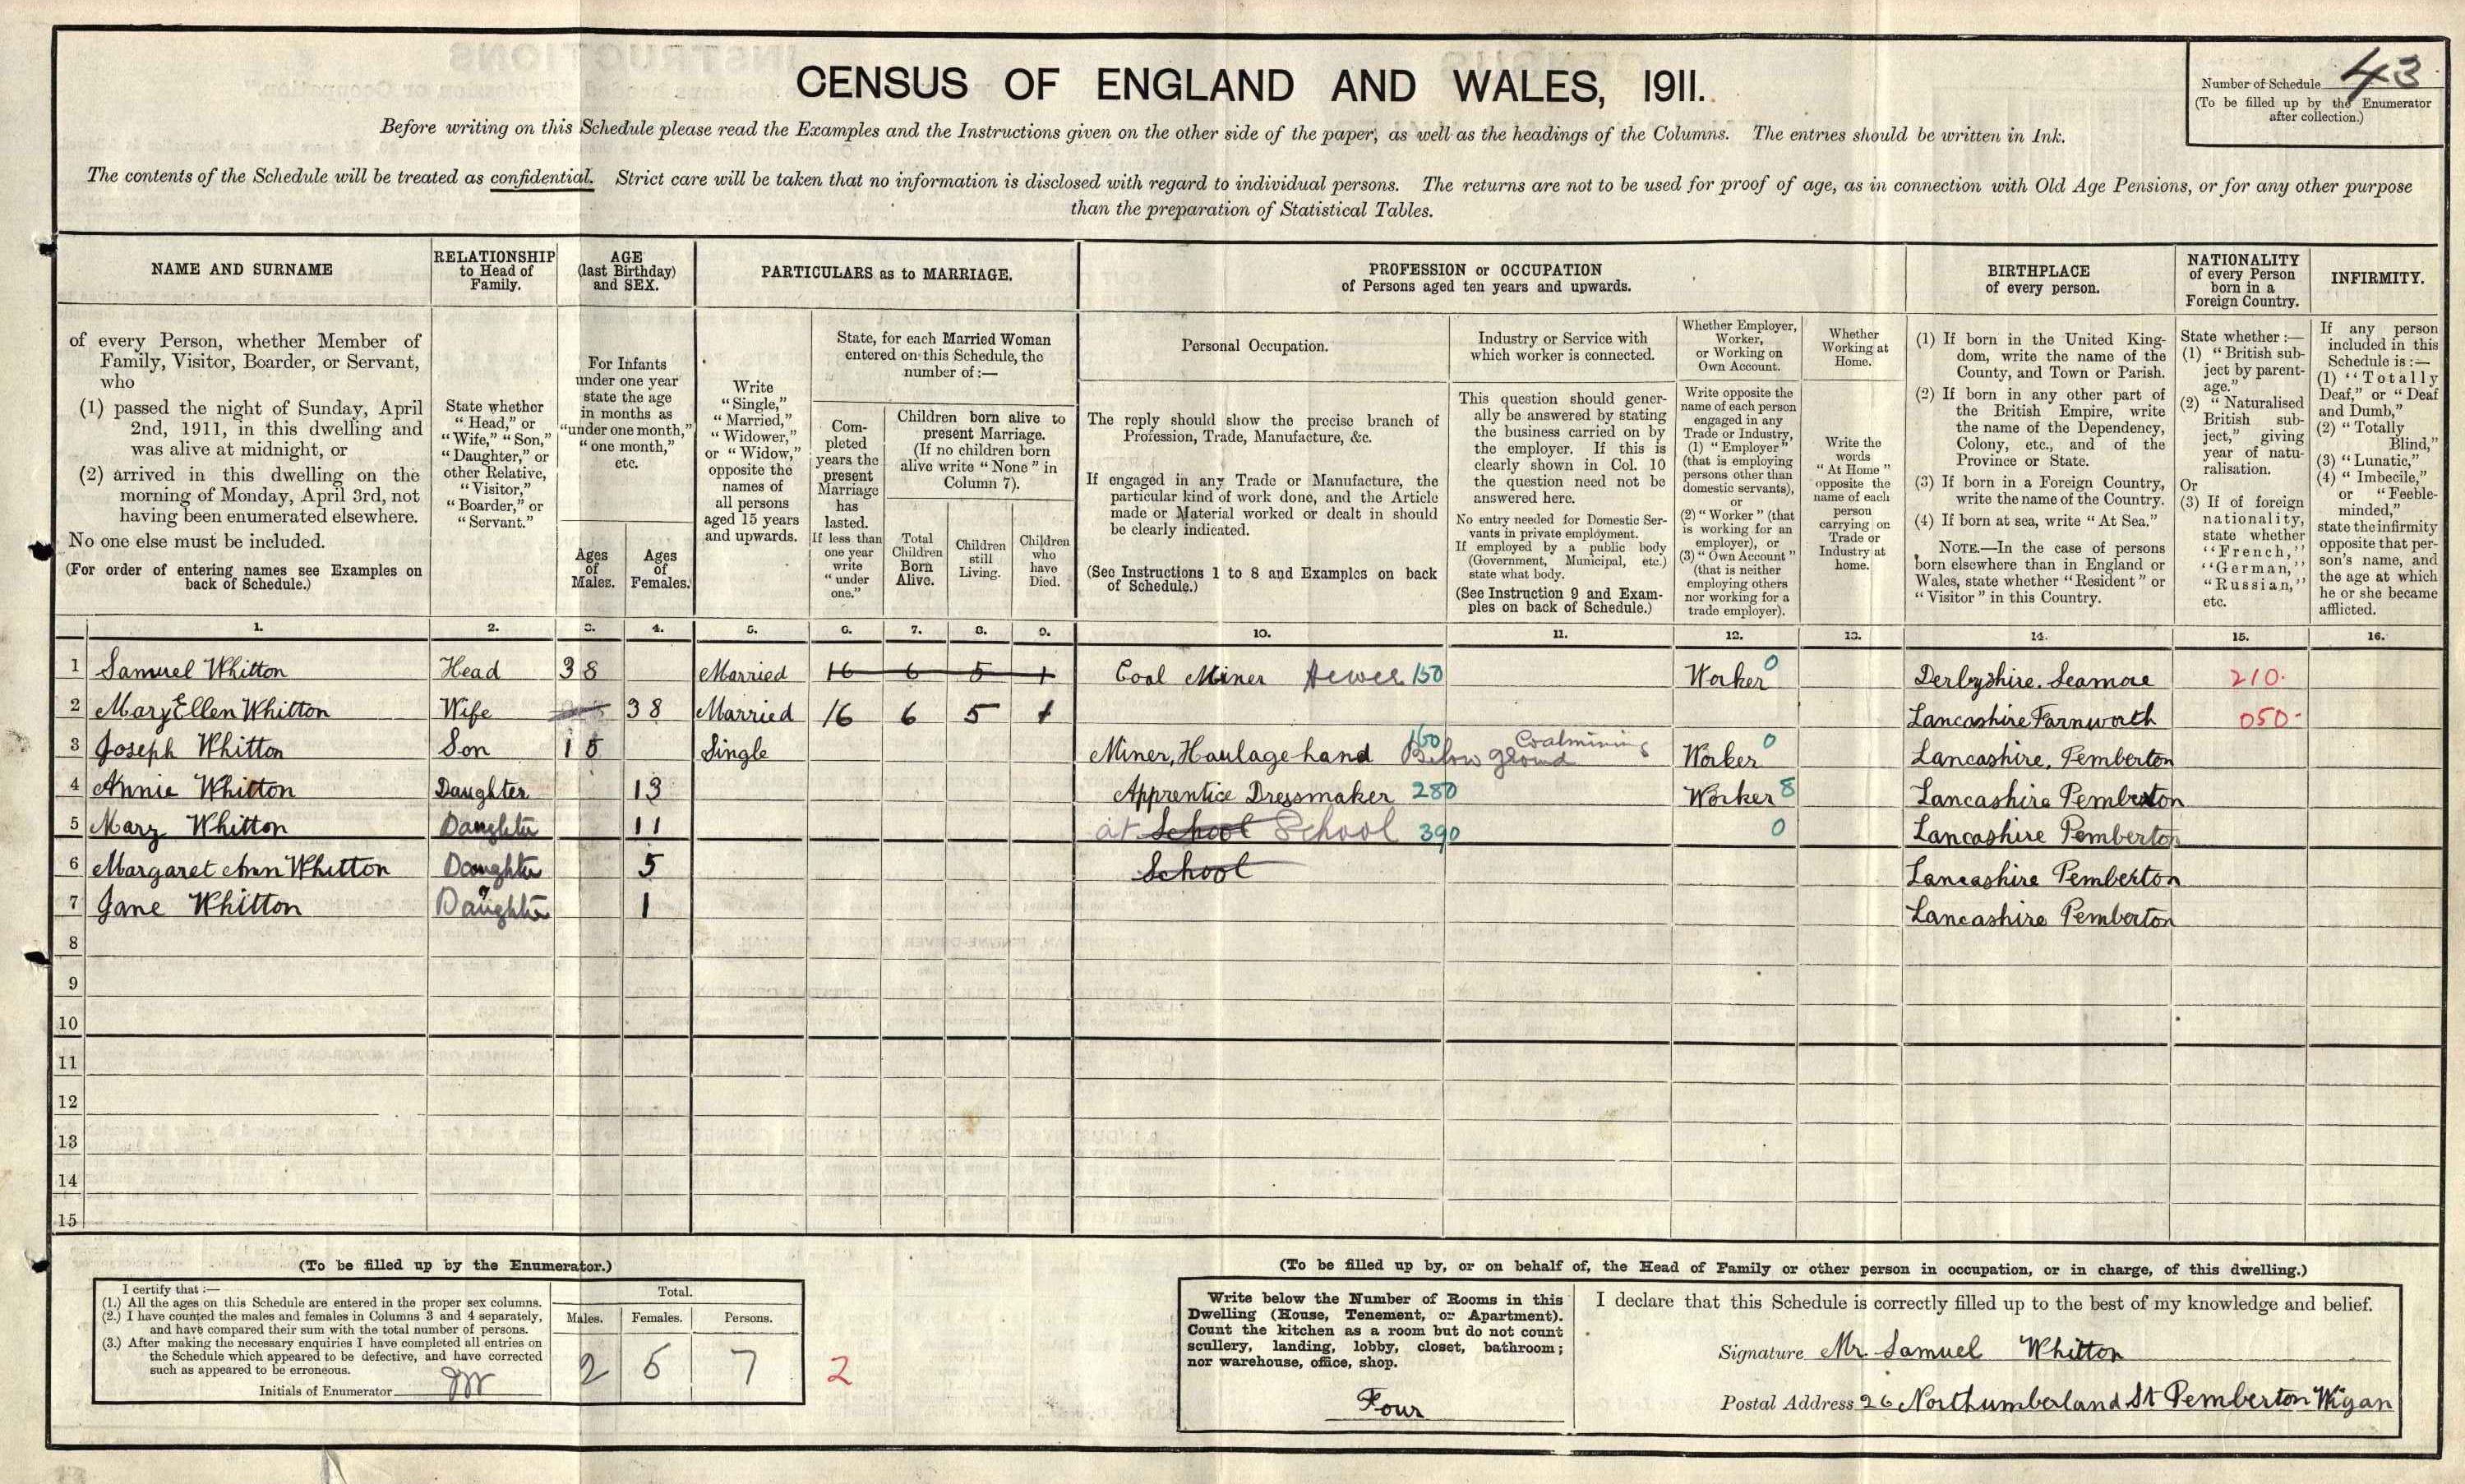 CENSUS OF ENGLAND AND WALES, 1911.
Number of Schedule 43
(To be filled up by the Enumerator
after collection.)
Before writing on this Schedule please read the Examples and the Instructions given on the other side of the paper, as well as the headings of the Columns. The entries should be written in Ink.
The contents of the Schedule will be treated as confidential. Strict care will be taken that no information is disclosed with regard to individual persons. The returns are not to be used for proof of age, as in connection with Old Age Pensions, or for any other purpose
than the preparation of Statistical Tables.
NAME AND SURNAME
of every Person, whether Member of
Family, Visitor, Boarder, or Servant,
who
(1) passed the night of Sunday, April
2nd, 1911, in this dwelling and
was alive at midnight, or
(2) arrived in this dwelling on the
morning of Monday, April 3rd, not
having been enumerated elsewhere.
No one else must be included.
(For order of entering names see Examples on
back of Schedule.)
RELATIONSHIP
to Head of
Family.
State whether
"Head," or
"Wife," "Son,"
"Daughter," or
other Relative,
"Visitor,"
"Boarder," or
"Servant."
AGE
(last Birthday)
and SEX.
For Infants
under one year
state the age
in months as
"under one month,"
"one month,"
etc.
Ages
of
Males.
Ages
of
Females.
PARTICULARS as to MARRIAGE.
Write
"Single,"
"Married,"
"Widower,"
or "Widow,"
opposite the
names of
all persons
aged 15 years
and upwards.
State, for each Married Woman
entered on this Schedule, the
number of:—
Com-
pleted
years the
present
Marriage
has
lasted.
If less than
one year
write
"under
one."
Children born alive to
present Marriage.
(If no children born
alive write "None" in
Column 7).
Total
Children
Born
Alive.
Children
still
Living.
Children
who
have
Died.
PROFESSION or OCCUPATION
of Persons aged ten years and upwards.
Personal Occupation.
The reply should show the precise branch of
Profession, Trade, Manufacture, &c.
If engaged in any Trade or Manufacture, the
particular kind of work done, and the Article
made or Material worked or dealt in should
be clearly indicated.
(See Instructions 1 to 8 and Examples on back
of Schedule.)
Industry or Service with
which worker is connected.
This question should gener-
ally be answered by stating
the business carried on by
the employer. If this is
clearly shown in Col. 10
the question need not be
answered here.
No entry needed for Domestic Ser-
vants in private employment.
If employed by a public body
(Government, Municipal, etc.)
state what body.
(See Instruction 9 and Exam-
ples on back of Schedule.)
Whether Employer,
Worker,
or Working on
Own Account.
Write opposite the
name of each person
engaged in any
Trade or Industry,
(1) "Employer"
(that is employing
persons other than
domestic servants),
or
(2) "Worker" (that
is working for an
employer), or
(3) "Own Account"
(that is neither
employing others
nor working for a
trade employer).
Whether
Working at
Home.
Write the
words
"At Home"
opposite the
name of each
person
carrying on
Trade or
Industry at
home.
BIRTHPLACE
of every person.
(1) If born in the United King-
dom, write the name of the
County, and Town or Parish.
(2) If born in any other part of
the British Empire, write
the name of the Dependency,
Colony, etc., and of the
Province or State.
(3) If born in a Foreign Country,
write the name of the Country.
(4) If born at sea, write "At Sea."
NOTE.—In the case of persons
born elsewhere than in England or
Wales, state whether "Resident" or
"Visitor" in this Country.
NATIONALITY
of every Person
born in a
Foreign Country.
State whether:—
(1) "British sub-
ject by parent-
age."
(2) "Naturalised
British sub-
ject," giving
year of natu-
ralisation.
Or
(3) If of foreign
nationality,
state whether
"French,"
"German,"
"Russian,"
etc.
INFIRMITY.
If any person
included in this
Schedule is:—
(1) "Totally
Deaf," or "Deaf
and Dumb,"
(2) "Totally
Blind,"
(3) "Lunatic,"
(4) "Imbecile,"
or "Feeble-
minded,"
state the infirmity
opposite that per-
son's name, and
the age at which
he or she became
afflicted.
1. 2. 3. 4. 5. 6. 7. 8. 9. 10. 11. 12. 13. 14. 15. 16.
1 Samuel Whitton Head 38 Married 16 6 5 1 Coal Miner Hewer 150 Worker 0 Derbyshire. Seamore 210.
2 Mary Ellen Whitton Wife 38 Married 16 6 5 1 Lancashire Farnworth 050-
3 Joseph Whitton Son 15 Single Miner, Haulage hand 160 Below ground Coalmining Worker 0 Lancashire, Pemberton
4 Annie Whitton Daughter 13 Apprentice Dressmaker 280 Worker 8 Lancashire Pemberton
5 Mary Whitton Daughter 11 at School School 390 0 Lancashire Pemberton
6 Margaret Ann Whitton Daughter 5 School Lancashire Pemberton
7 Jane Whitton Daughter 1 Lancashire Pemberton
8
9
10
11
12
13
14
15
(To be filled up by the Enumerator.)
I certify that:—
(1.) All the ages on this Schedule are entered in the proper sex columns.
(2.) I have counted the males and females in Columns 3 and 4 separately,
and have compared their sum with the total number of persons.
(3.) After making the necessary enquiries I have completed all entries on
the Schedule which appeared to be defective, and have corrected
such as appeared to be erroneous.
Initials of Enumerator
Total.
Males. Females. Persons.
2 5 7 2
(To be filled up by, or on behalf of, the Head of Family or other person in occupation, or in charge, of this dwelling.)
Write below the Number of Rooms in this
Dwelling (House, Tenement, or Apartment).
Count the kitchen as a room but do not count
scullery, landing, lobby, closet, bathroom;
nor warehouse, office, shop.
Four
I declare that this Schedule is correctly filled up to the best of my knowledge and belief.
Signature Mr. Samuel Whitton
Postal Address 26 Northumberland St Pemberton Wigan